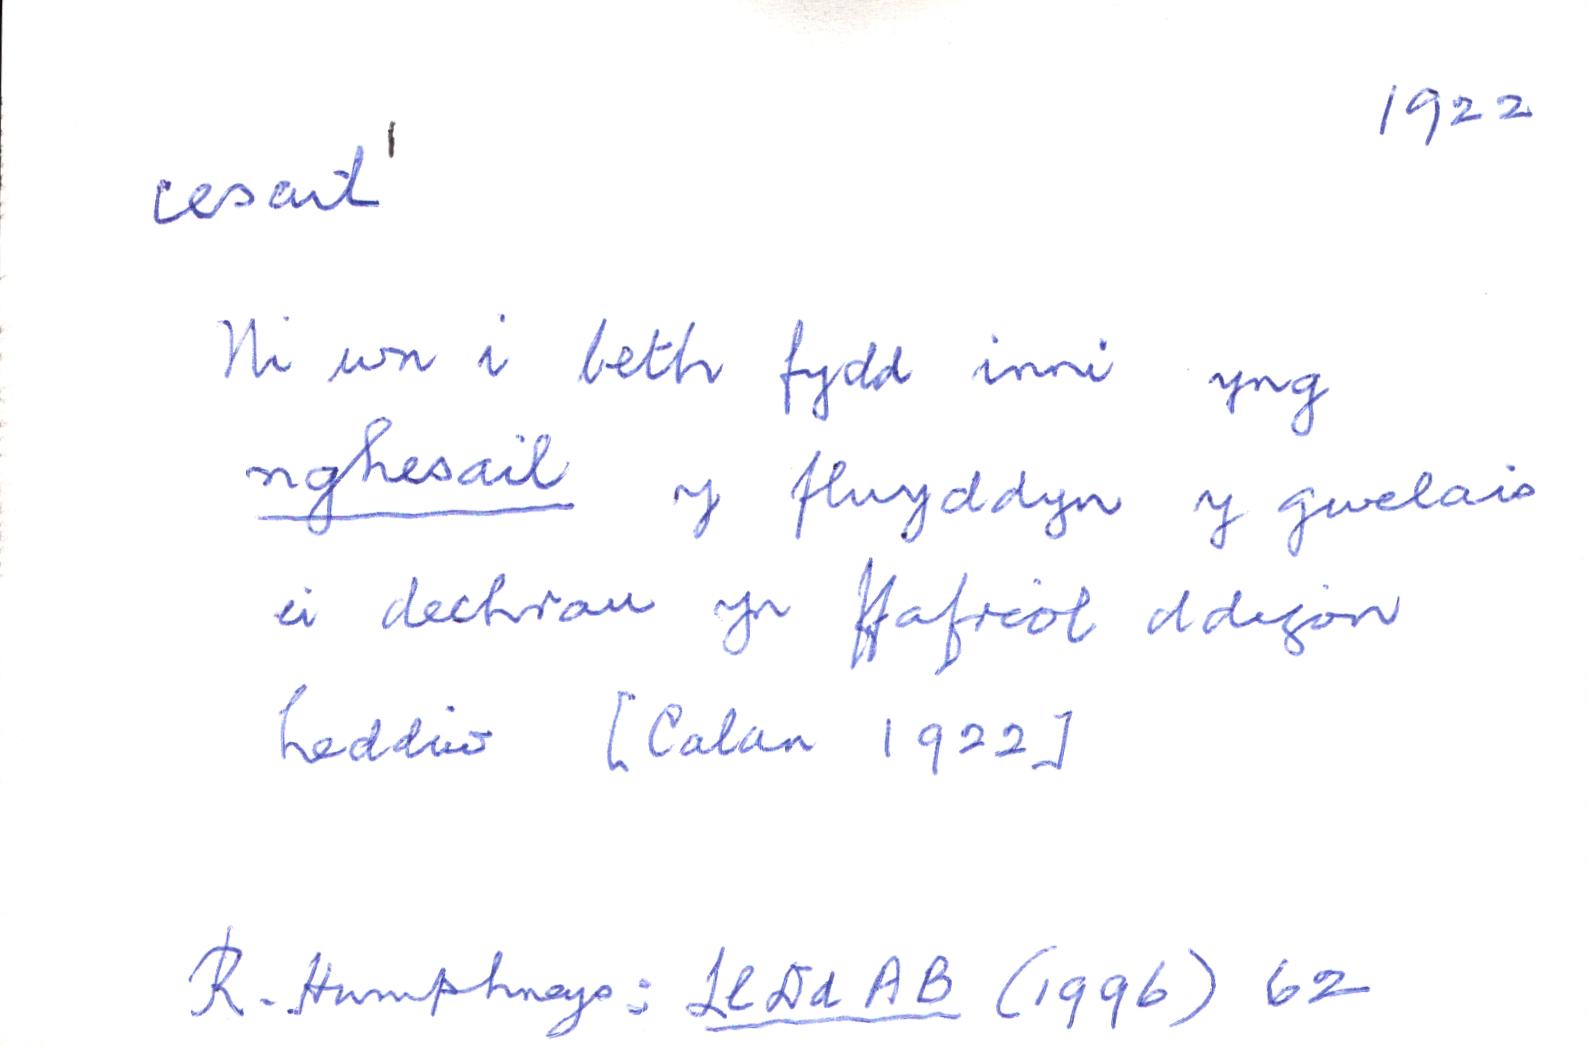 1922
cesail¹
Ni wn i beth fydd inni yng
nghesail y flwyddyn y gwelais
ei dechrau yn ffafriol ddigon
heddiw [Calan 1922]
R. Humphreys: LlDdAB (1996) 62